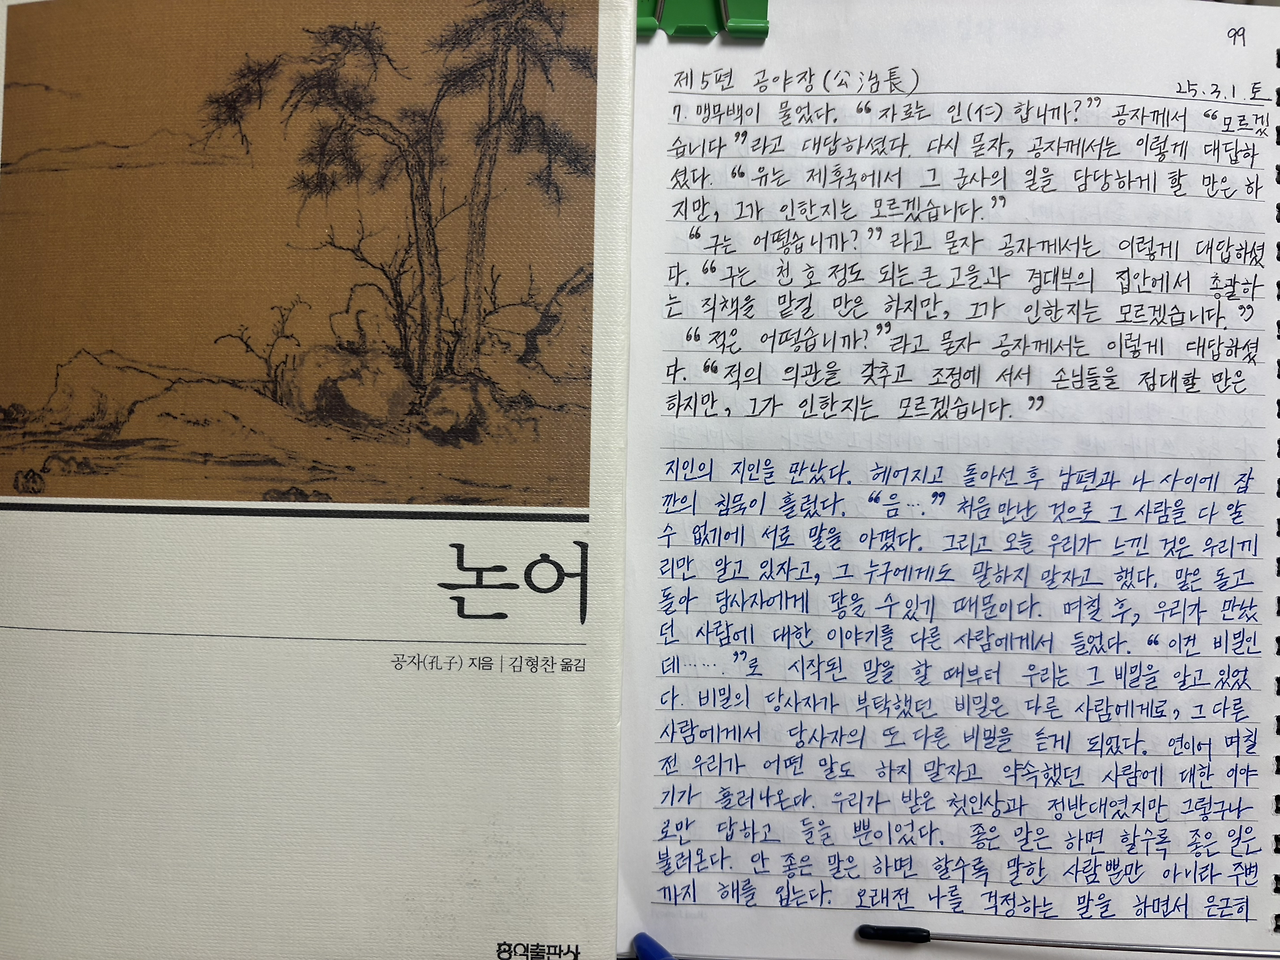 논어
공자(孔子) 지음 | 김형찬 옮김
홍익출판사
99
제5편 공야장(公冶長)
25.3.1.토
7. 맹무백이 물었다. “자로는 인(仁)합니까?” 공자께서 “모르겠
습니다”라고 대답하셨다. 다시 묻자, 공자께서는 이렇게 대답하
셨다. “유는 제후국에서 그 군사의 일을 담당하게 할 만은 하
지만, 그가 인한지는 모르겠습니다.”
“구는 어떻습니까?”라고 묻자 공자께서는 이렇게 대답하셨
다. “구는 천 호 정도 되는 큰 고을과 경대부의 집안에서 총괄하
는 직책을 맡길 만은 하지만, 그가 인한지는 모르겠습니다.”
“적은 어떻습니까?”라고 묻자 공자께서는 이렇게 대답하셨
다. “적의 의관을 갖추고 조정에 서서 손님들을 접대할 만은
하지만, 그가 인한지는 모르겠습니다.”
지인의 지인을 만났다. 헤어지고 돌아선 후 남편과 나 사이에 잠
깐의 침묵이 흘렀다. “음….” 처음 만난 것으로 그 사람을 다 알
수 없기에 서로 말을 아꼈다. 그리고 오늘 우리가 느낀 것은 우리끼
리만 알고 있자고, 그 누구에게도 말하지 말자고 했다. 말은 돌고
돌아 당사자에게 닿을 수 있기 때문이다. 며칠 후, 우리가 만났
던 사람에 대한 이야기를 다른 사람에게서 들었다. “이건 비밀인
데……”로 시작된 말을 할 때부터 우리는 그 비밀을 알고 있었
다. 비밀의 당사자가 부탁했던 비밀은 다른 사람에게로, 그 다른
사람에게서 당사자의 또 다른 비밀을 듣게 되었다. 연이어 며칠
전 우리가 어떤 말도 하지 말자고 약속했던 사람에 대한 이야
기가 흘러나온다. 우리가 받은 첫인상과 정반대였지만 그렇구나
로만 답하고 들을 뿐이었다. 좋은 말은 하면 할수록 좋은 일은
불러온다. 안 좋은 말은 하면 할수록 말한 사람뿐만 아니라 주변
까지 해를 입는다. 오래전 나를 걱정하는 말을 하면서 은근히